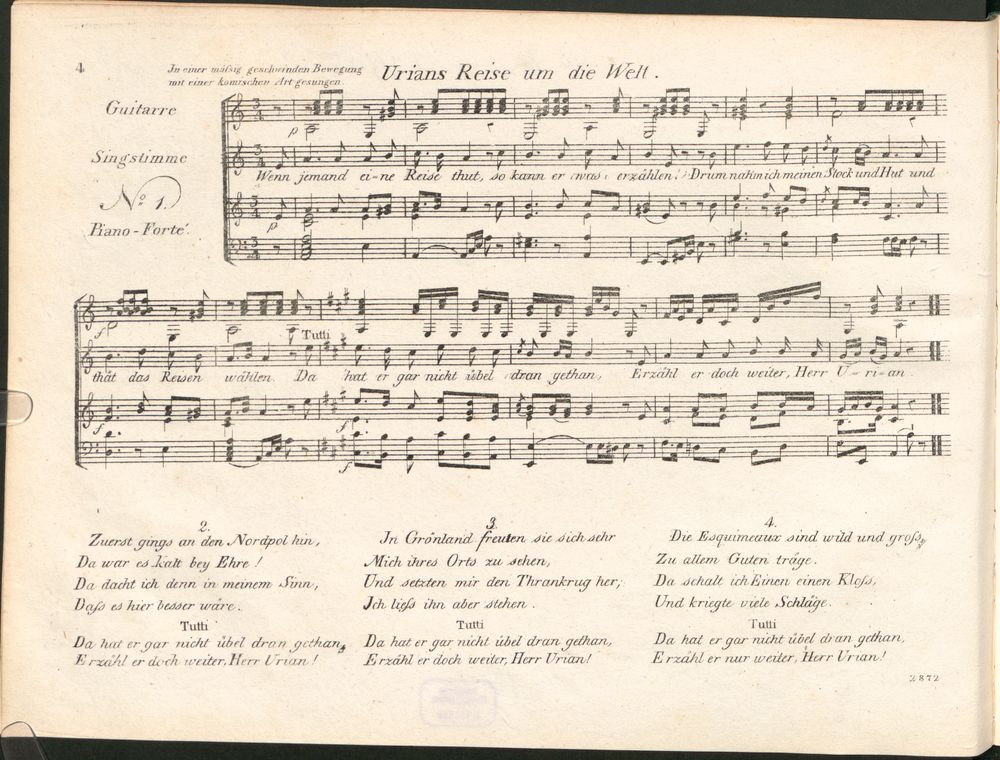 4
In einer mäßig geschwinden Bewegung
mit einer komischen Art gesungen.
Urians Reise um die Welt.
Guitarre
Singstimme
No. 1.
Piano-Forté.
p
Wenn jemand ei=ne Reise thut, so kann er was erzählen. Drum nahm ich meinen Stock und Hut und
p
f
Tutti
thät das Reisen wählen. Da hat er gar nicht übel dran gethan, Erzähl er doch weiter, Herr U=ri=an.
f
f
f
2.
Zuerst gings an den Nordpol hin,
Da war es kalt bey Ehre!
Da dacht ich denn in meinem Sinn,
Daſs es hier besser wäre.
Tutti
Da hat er gar nicht übel dran gethan,
Erzähl er doch weiter, Herr Urian!
3.
In Grönland freuten sie sich sehr
Mich ihres Orts zu sehen,
Und setzten mir den Thrankrug her,
Ich lieſs ihn aber stehen.
Tutti
Da hat er gar nicht übel dran gethan,
Erzähl er doch weiter, Herr Urian!
4.
Die Esquimeaux sind wild und groſs,
Zu allem Guten träge.
Da schalt ich Einen einen Kloſs,
Und kriegte viele Schläge.
Tutti
Da hat er gar nicht übel dran gethan,
Erzähl er nur weiter, Herr Urian!
2872